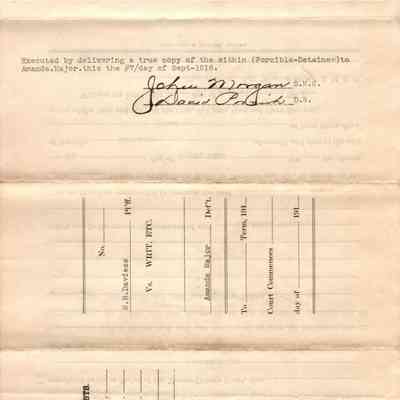 Executed by delivering a true copy of the within (Forcible-Detainer)to
Amanda.Major.this the 27/day of Sept-1916.
John Morgan S.M.C.
By David Parish D.S.
No.
S.B.Daviess Pl'ff.
Vs. WRIT, ETC.
Amanda Major Def't.
To Term, 191
Court Commences
day of 191